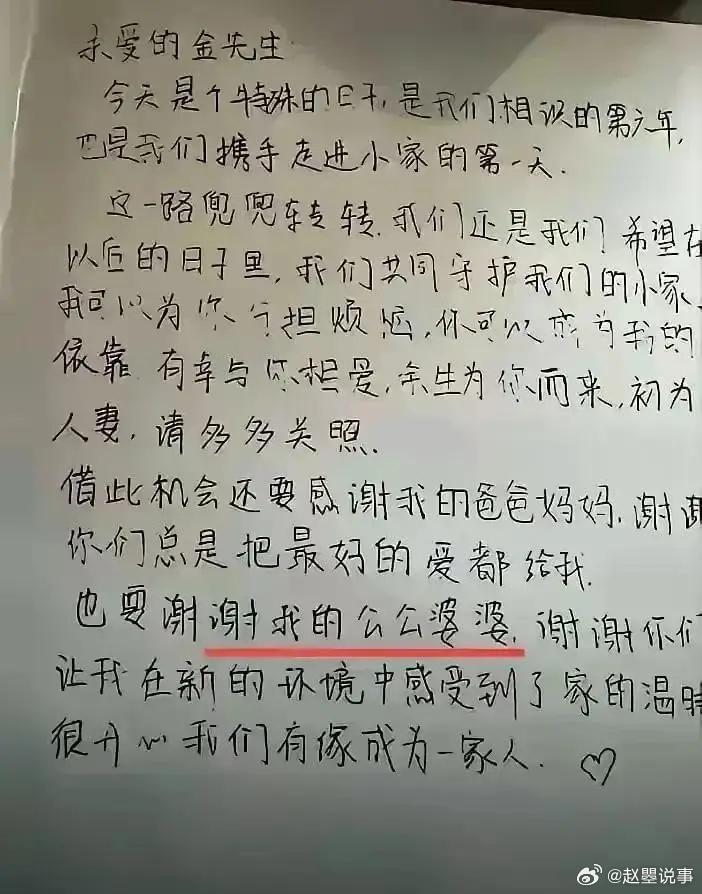 亲爱的金先生
今天是个特殊的日子,是我们相识的第六年,
也是我们携手走进小家的第一天.
这一路兜兜转转.我们还是我们?希望在
以后的日子里,我们共同守护我们的小家、
我可以为你分担烦恼,你可以成为我的
依靠 有幸与你相爱,余生为你而来,初为
人妻,请多多关照.
借此机会还要感谢我的爸爸妈妈.谢谢
你们总是把最好的爱都给我.
也要谢谢我的公公婆婆.谢谢你们
让我在新的环境中感受到了家的温暖
很开心我们有缘成为一家人.♡
@赵曌说事